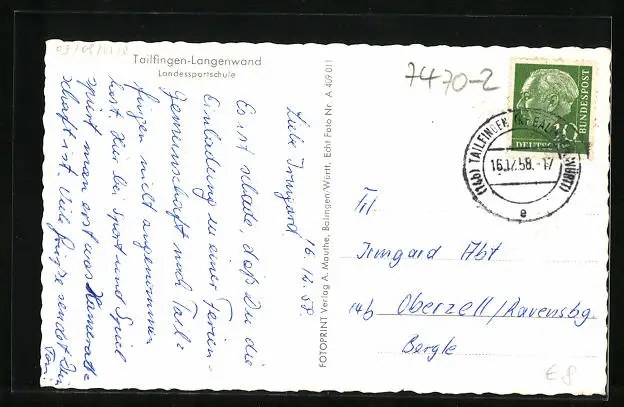 03/08/0218
Tailfingen-Langenwand
Landessportschule
16.12.58
Liebe Irmgard
Es ist schade, daß Du die
Einladung in einer Ferien-
gemeinschaft nach Tail-
fingen nicht angenommen
hast. Hier bei Sport und Spiel
spürt man erst was Kamerad-
schaft ist. Viele Grüße sendet Dir
FOTOPRINT Verlag A. Mauthe, Balingen/Württ. Echt Foto Nr. A 409 011
7470-2
DEUTSCHE
BUNDESPOST
10
(14b) TAILFINGEN (WÜRTT)
16.12.58.-17
e
Frl.
Irmgard Abt
14b Oberzell/Ravensbg.
Bergle
€ 8